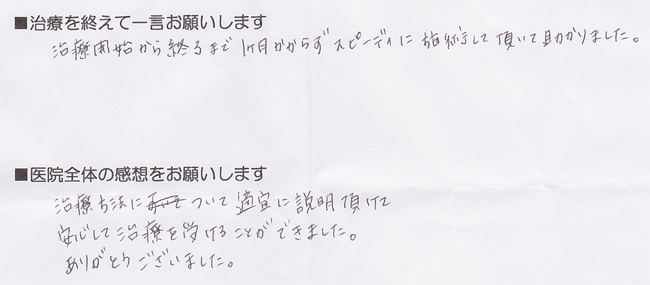 ■治療を終えて一言お願いします
治療開始から終るまで1ヶ月かからずスピーディに施術して頂いて助かりました。
■医院全体の感想をお願いします
治療方法について適宜に説明頂けて
安心して治療を受けることができました。
ありがとうございました。